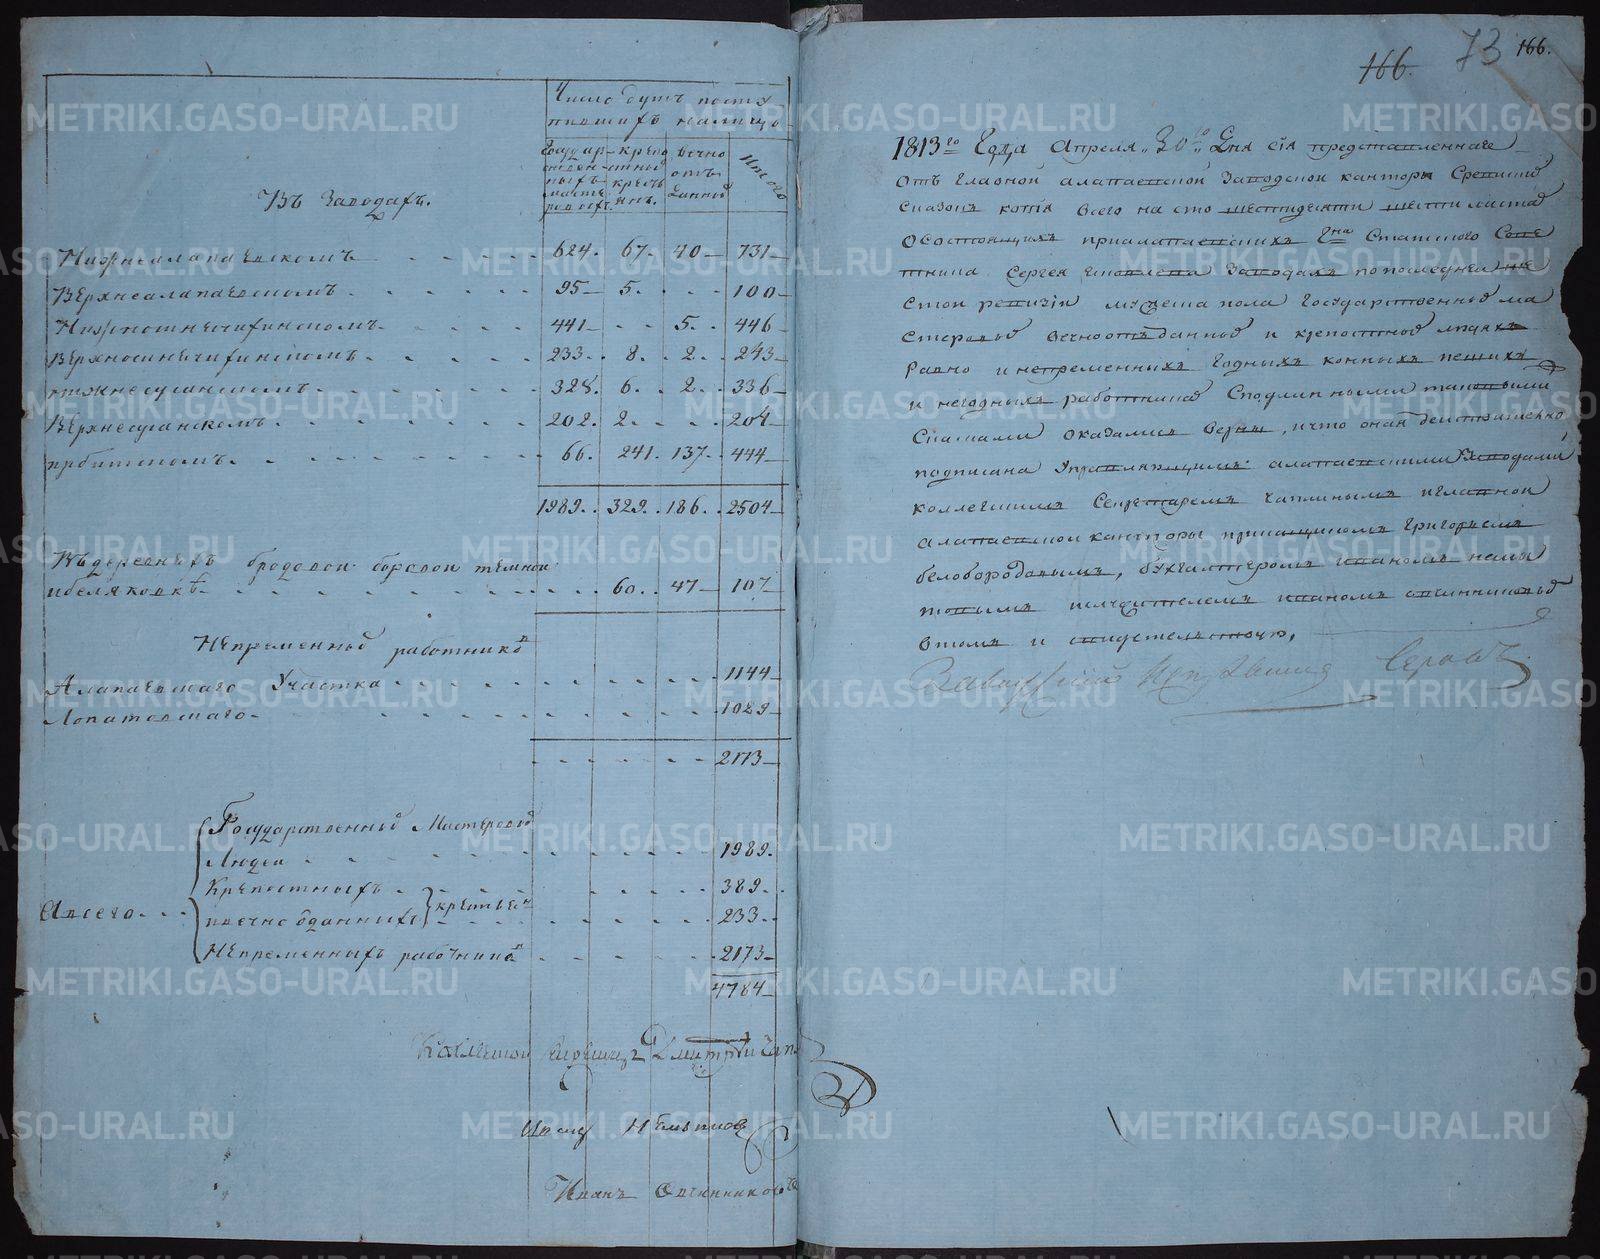 Число душъ посту
пившихъ налицо
Въ Заводахъ.
Государ-
ствен-
ныхъ
масте
ровыхъ.
крепо
стныхъ
кресть
янъ.
Вечно
отъ
данныхъ
Итого
Нижнеалапаевскомъ 624. 67. 40 731
Верхнеалапаевскомъ 95 5. 100
Нижнесинячихинскомъ 441 5. 446
Верхнесинячихинскомъ 233. 8. 2. 243
нижнесусанскомъ 328. 6. 2. 336
Верхнесусанскомъ 202. 2. 204
ирбитскомъ 66. 241. 137. 444
1989. 329. 186. 2504
Въ деревняхъ бродовой боровой темной
ибеляковкѣ 60. 47 107
Непременныхъ работниковъ
Алапаевскаго Участка 1144
Лопатовскаго 1029
2173
Авсего
Государственныхъ Мастеровыхъ
Людей 1989.
Крепостныхъ 389.
ивечно отданныхъ крестьянъ 233.
Непременныхъ работниковъ 2173
4784
Дмитрий Чап
Иванъ Овчинниковъ
166. 73 166.
1813го Года Апреля 30го Дня сія представленная
Отъ главной алапаевской Заводской канторы Средний
Сказокъ копія всего на сто шестидесяти шести листахъ
Осостоящихъ приалапаевскихъ Гна Статского Сове
тника Сергея Яковлева Заводахъ попоследней ше
стой ревизіи мужеска пола государственныхъ ма
стеровыхъ вечноотъданныхъ и крепостныхъ людяхъ
равно инепременныхъ годныхъ конныхъ пешихъ
и негодныхъ работникахъ Сподлинными таковыми
Сказками оказались верны, ичто оная действительно
подписана Управляющимъ алапаевскими Заводами
коллегскимъ Секретаремъ Чаплинымъ иглавной
алапаевской канторы прикащикомъ Григорьемъ
белобородовымъ, бухгалтеромъ иваномъ
иваномъ овчинниковымъ
втомъ и свидетельствую,
METRIKI.GASO-URAL.RU